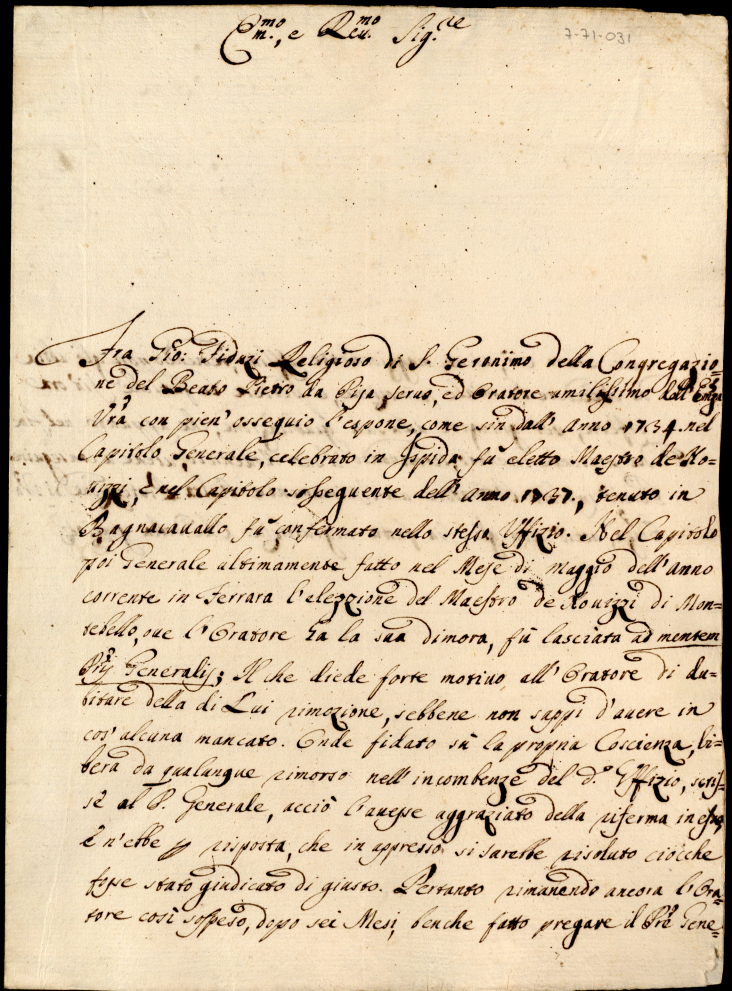 Em.mo, e Reu.mo Sig.re
7-71-031
Fra Gio: Fiduzi Religioso di S. Geronimo della Congregazio=
ne del Beato Pietro da Pisa seruo, ed Oratore umilissimo dell' Emza
Vrã con pien' ossequio l'espone, come sin dall' Anno 1734. nel
Capitolo Generale, celebrato in Ispida, fù eletto Maestro de No=
uizzi, e nel Capitolo susseguente dell' Anno 1737., tenuto in
Bagnacauallo fù confermato nello stesso Uffizio. Nel Capitolo
poi Generale ultimamente fatto nel Mese di maggio dell' anno
corrente in Ferrara l'elezzione del Maestro de Nouizzi di Mon=
tebello, oue l'Oratore hà la sua dimora, fù lasciata ad mentem
Pris Generalis; Il che diede forte motiuo all' Oratore di du=
bitare della di Lui rimozione, sebbene non sappi d'auere in
cos' alcuna mancato. Onde fidato sù la propria Coscienza, li=
bera da qualunque rimorso nell' incombenze del d.o Uffizio, scris=
se al P. Generale, acciò l'auesse aggraziato della riferma in esso,
e n'ebbe p risposta, che in appresso si sarebbe risoluto ciòcche
fosse stato giudicato di giusto. Pertanto rimanendo ancora l'Ora=
tore così sospeso, dopo sei Mesi, benche fatto pregare il Prẽ Gene=